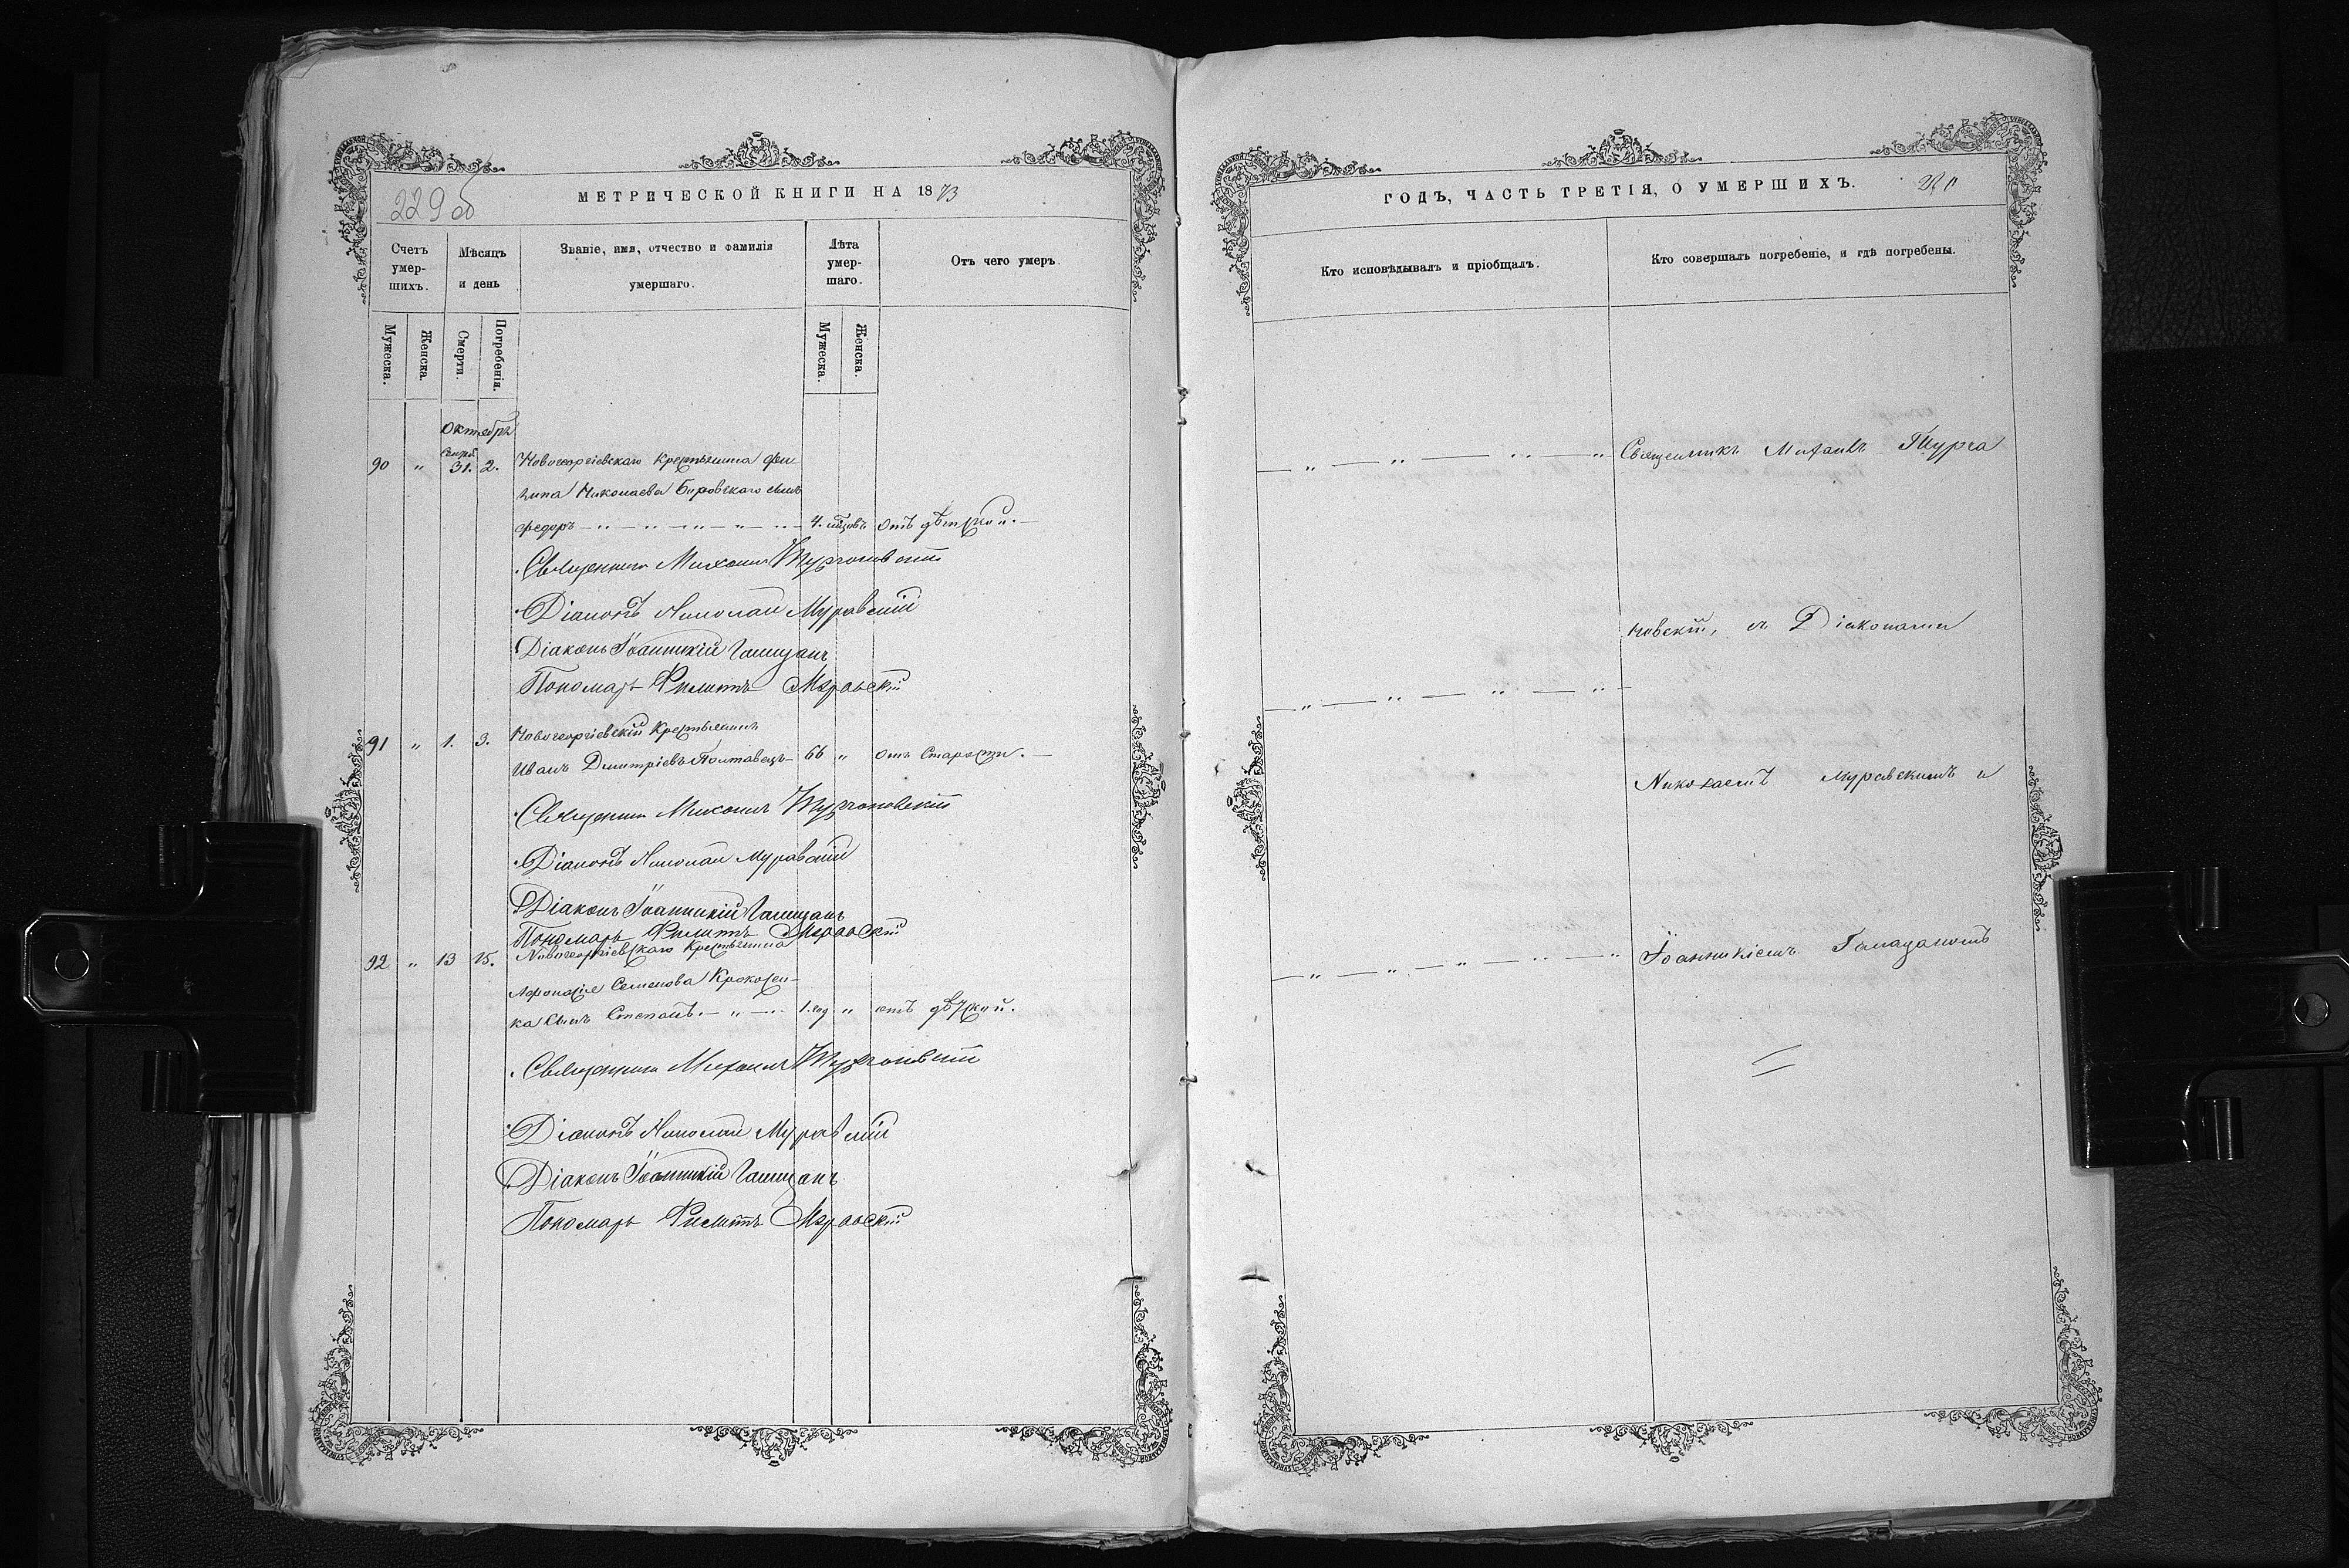 229 об
МЕТРИЧЕСКОЙ КНИГИ НА 1873
Счетъ умер-шихъ.
Мѣсяцъ и день
Званіе, имя, отчество и фамилія умершаго.
Лѣта умер-шаго.
Отъ чего умеръ.
Мужеска.
Женска.
Смерти.
Погребенія.
Мужеска.
Женска.
Октябрь
90 " 31. 2. Новогеоргіевскаго крестьянина Фи
липа Николаева Боровскаго сынъ
Федоръ 4. мѣсяцовъ отъ дѣтской.
Священникъ Михаилъ Турчановскій
Діаконъ Николай Муравскій
Діаконъ Іоанникій Галацанъ
Пономарь Филиппъ Муравскій
91 " 1. 3. Новогеоргіевскій Крестьянинъ
Иванъ Дмитріевъ Полтавецъ 66 " отъ Старости.
Священникъ Михаилъ Турчановскій
Діаконъ Николай Муравскій
Діаконъ Іоанникій Галацанъ
Пономарь Филиппъ Муравскій
92 " 13 15. Новогеоргіевскаго Крестьянина
Семенова
ка сынъ Степанъ. 1. год " отъ дѣтской.
Священникъ Михаилъ Турчановскій
Діаконъ Николай Муравскій
Діаконъ Іоанникій Галацанъ
Пономарь Филиппъ Муравскій
ГОДЪ, ЧАСТЬ ТРЕТІЯ, О УМЕРШИХЪ.
Кто исповѣдывалъ и пріобщалъ.
Кто совершалъ погребеніе, и гдѣ погребены.
Священникъ Михаилъ Турча
новскій, съ Діаконами
Николаемъ Муравскимъ и
Іоанникіемъ Галацаномъ